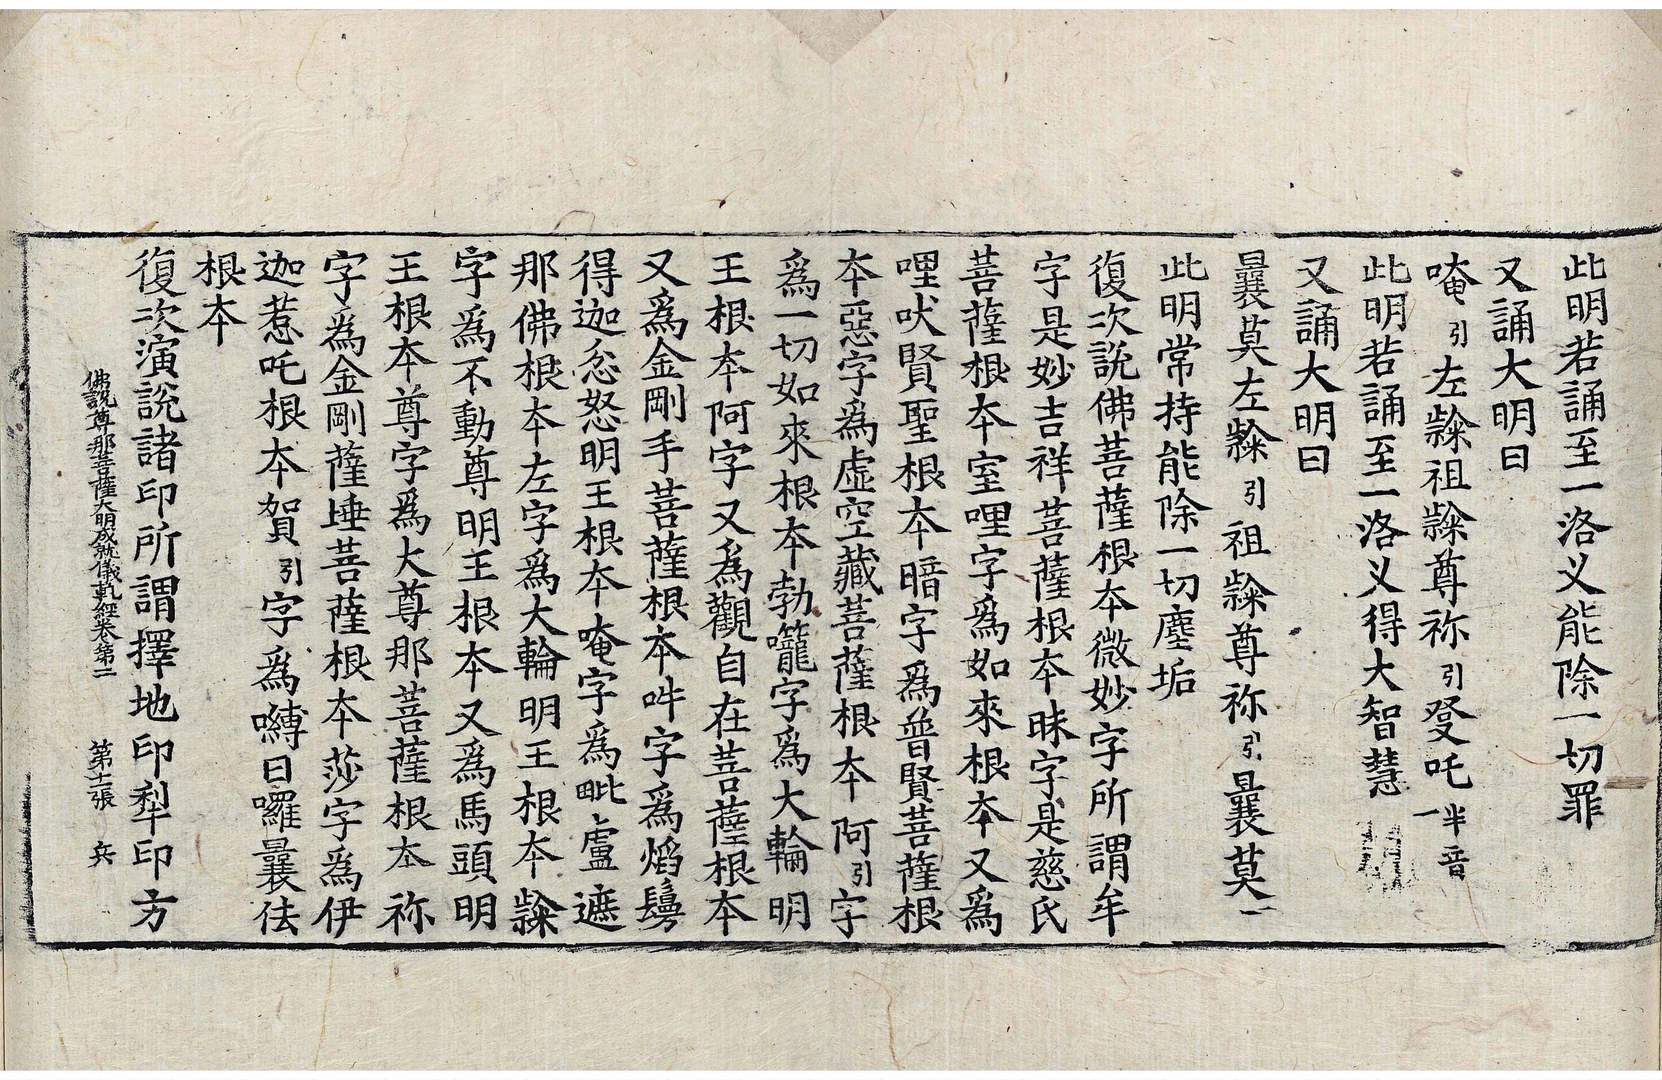 此明若誦至一洛义能除一切罪
又誦大明曰
唵引左𪐴祖𪐴尊祢引發吒半音一
此明若誦至一洛义得大智慧
又誦大明曰
曩莫左𪐴引祖𪐴尊祢引曩莫一
此明常持能除一切塵垢
復次說佛菩薩根本微妙字所謂牟
字是妙吉祥菩薩根本昧字是慈氏
菩薩根本室哩字爲如來根本又爲
哩吠賢聖根本暗字爲普賢菩薩根
本惡字爲虛空藏菩薩根本阿引字
爲一切如來根本勃嚨字爲大輪明
王根本阿字又爲觀自在菩薩根本
又爲金剛手菩薩根本吽字爲焰鬘
得迦忿怒明王根本唵字爲毗盧遮
那佛根本左字爲大輪明王根本𪐴
字爲不動尊明王根本又爲馬頭明
王根本尊字爲大尊那菩薩根本祢
字爲金剛薩埵菩薩根本莎字爲伊
迦惹吒根本賀引字爲嚩日囉曩佉
根本
復次演說諸印所謂擇地印犁印方
佛說尊那菩薩大明成就儀軌經卷第一 第十二張 兵